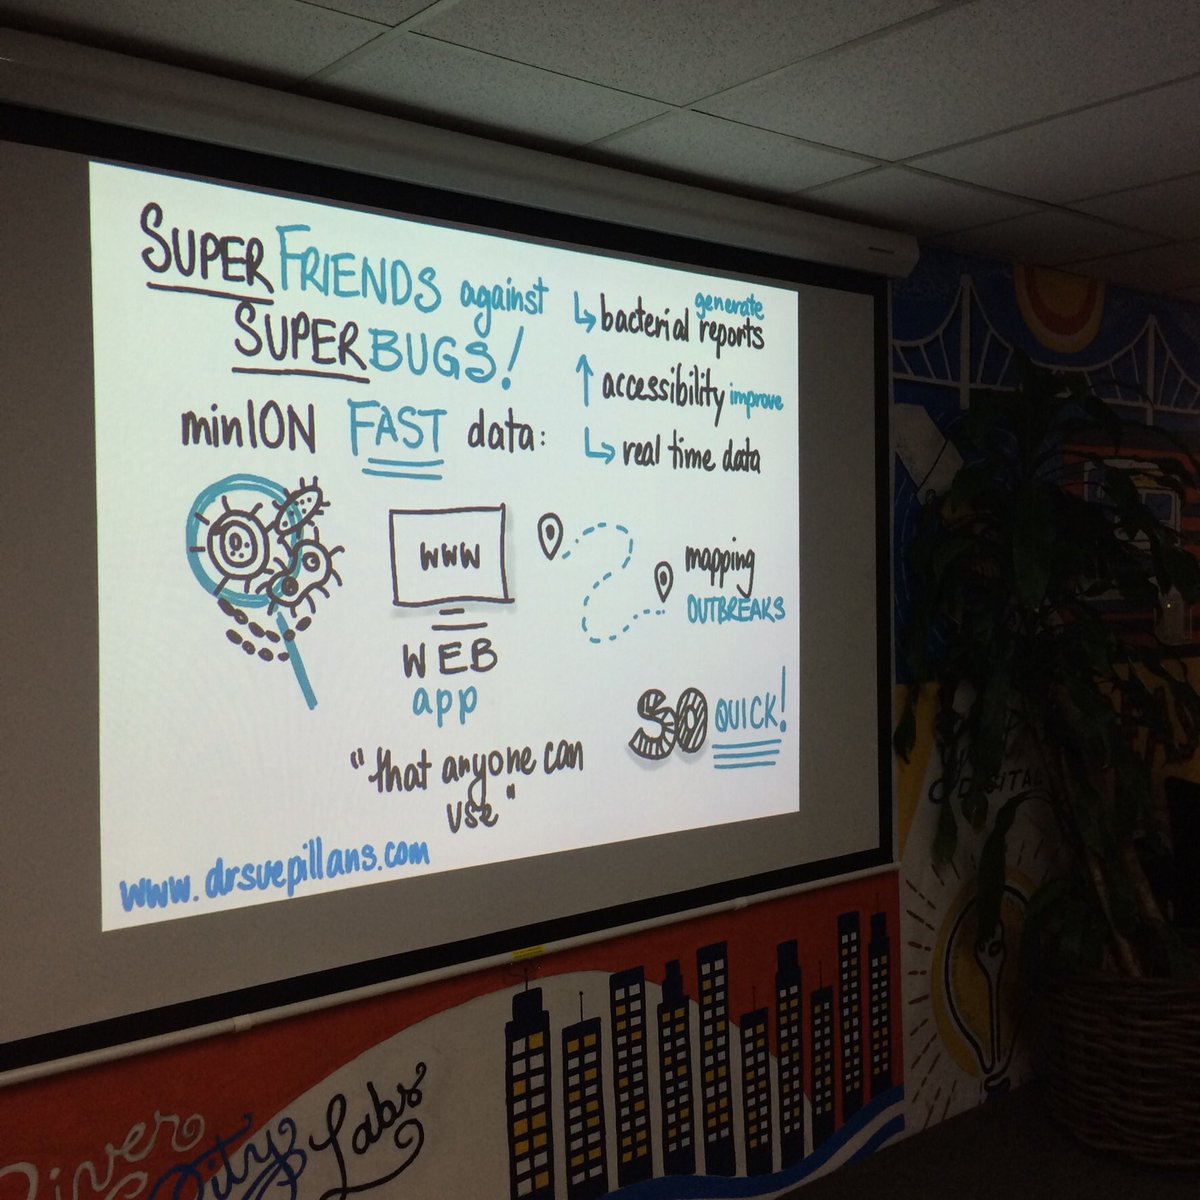 SUPER FRIENDS against
SUPERBUGS!
minION FAST data:
generate
bacterial reports
accessibility improve
real time data
www
WEB
app
"that anyone can
use"
mapping
OUTBREAKS
SO QUICK!
www.drsuepillans.com
River
City Labs
DIGITAL